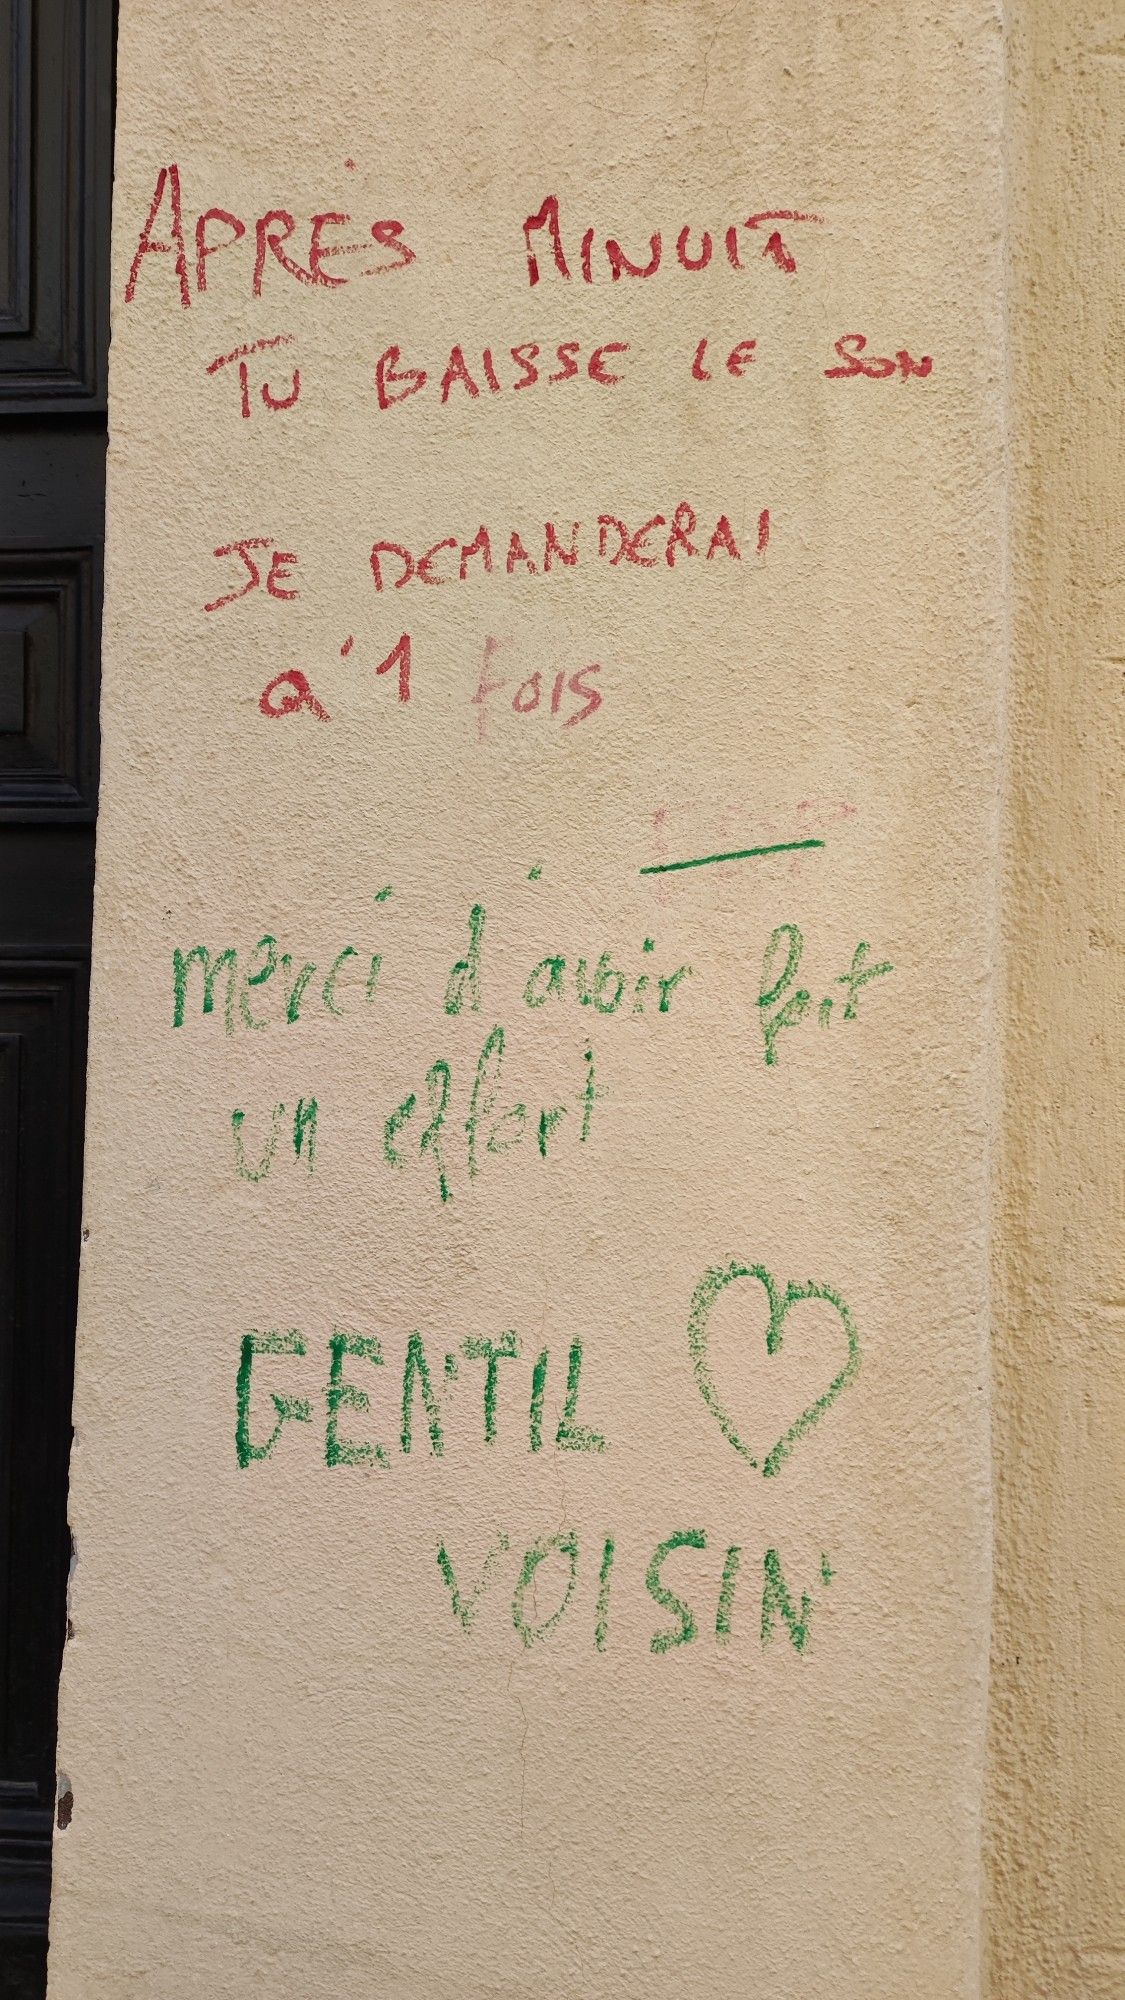 APRÈS MINUIT
TU BAISSE LE SON
JE DEMANDERAI
Q'1 FOIS
merci d'avoir fait
un effort
GENTIL ♡
VOISIN